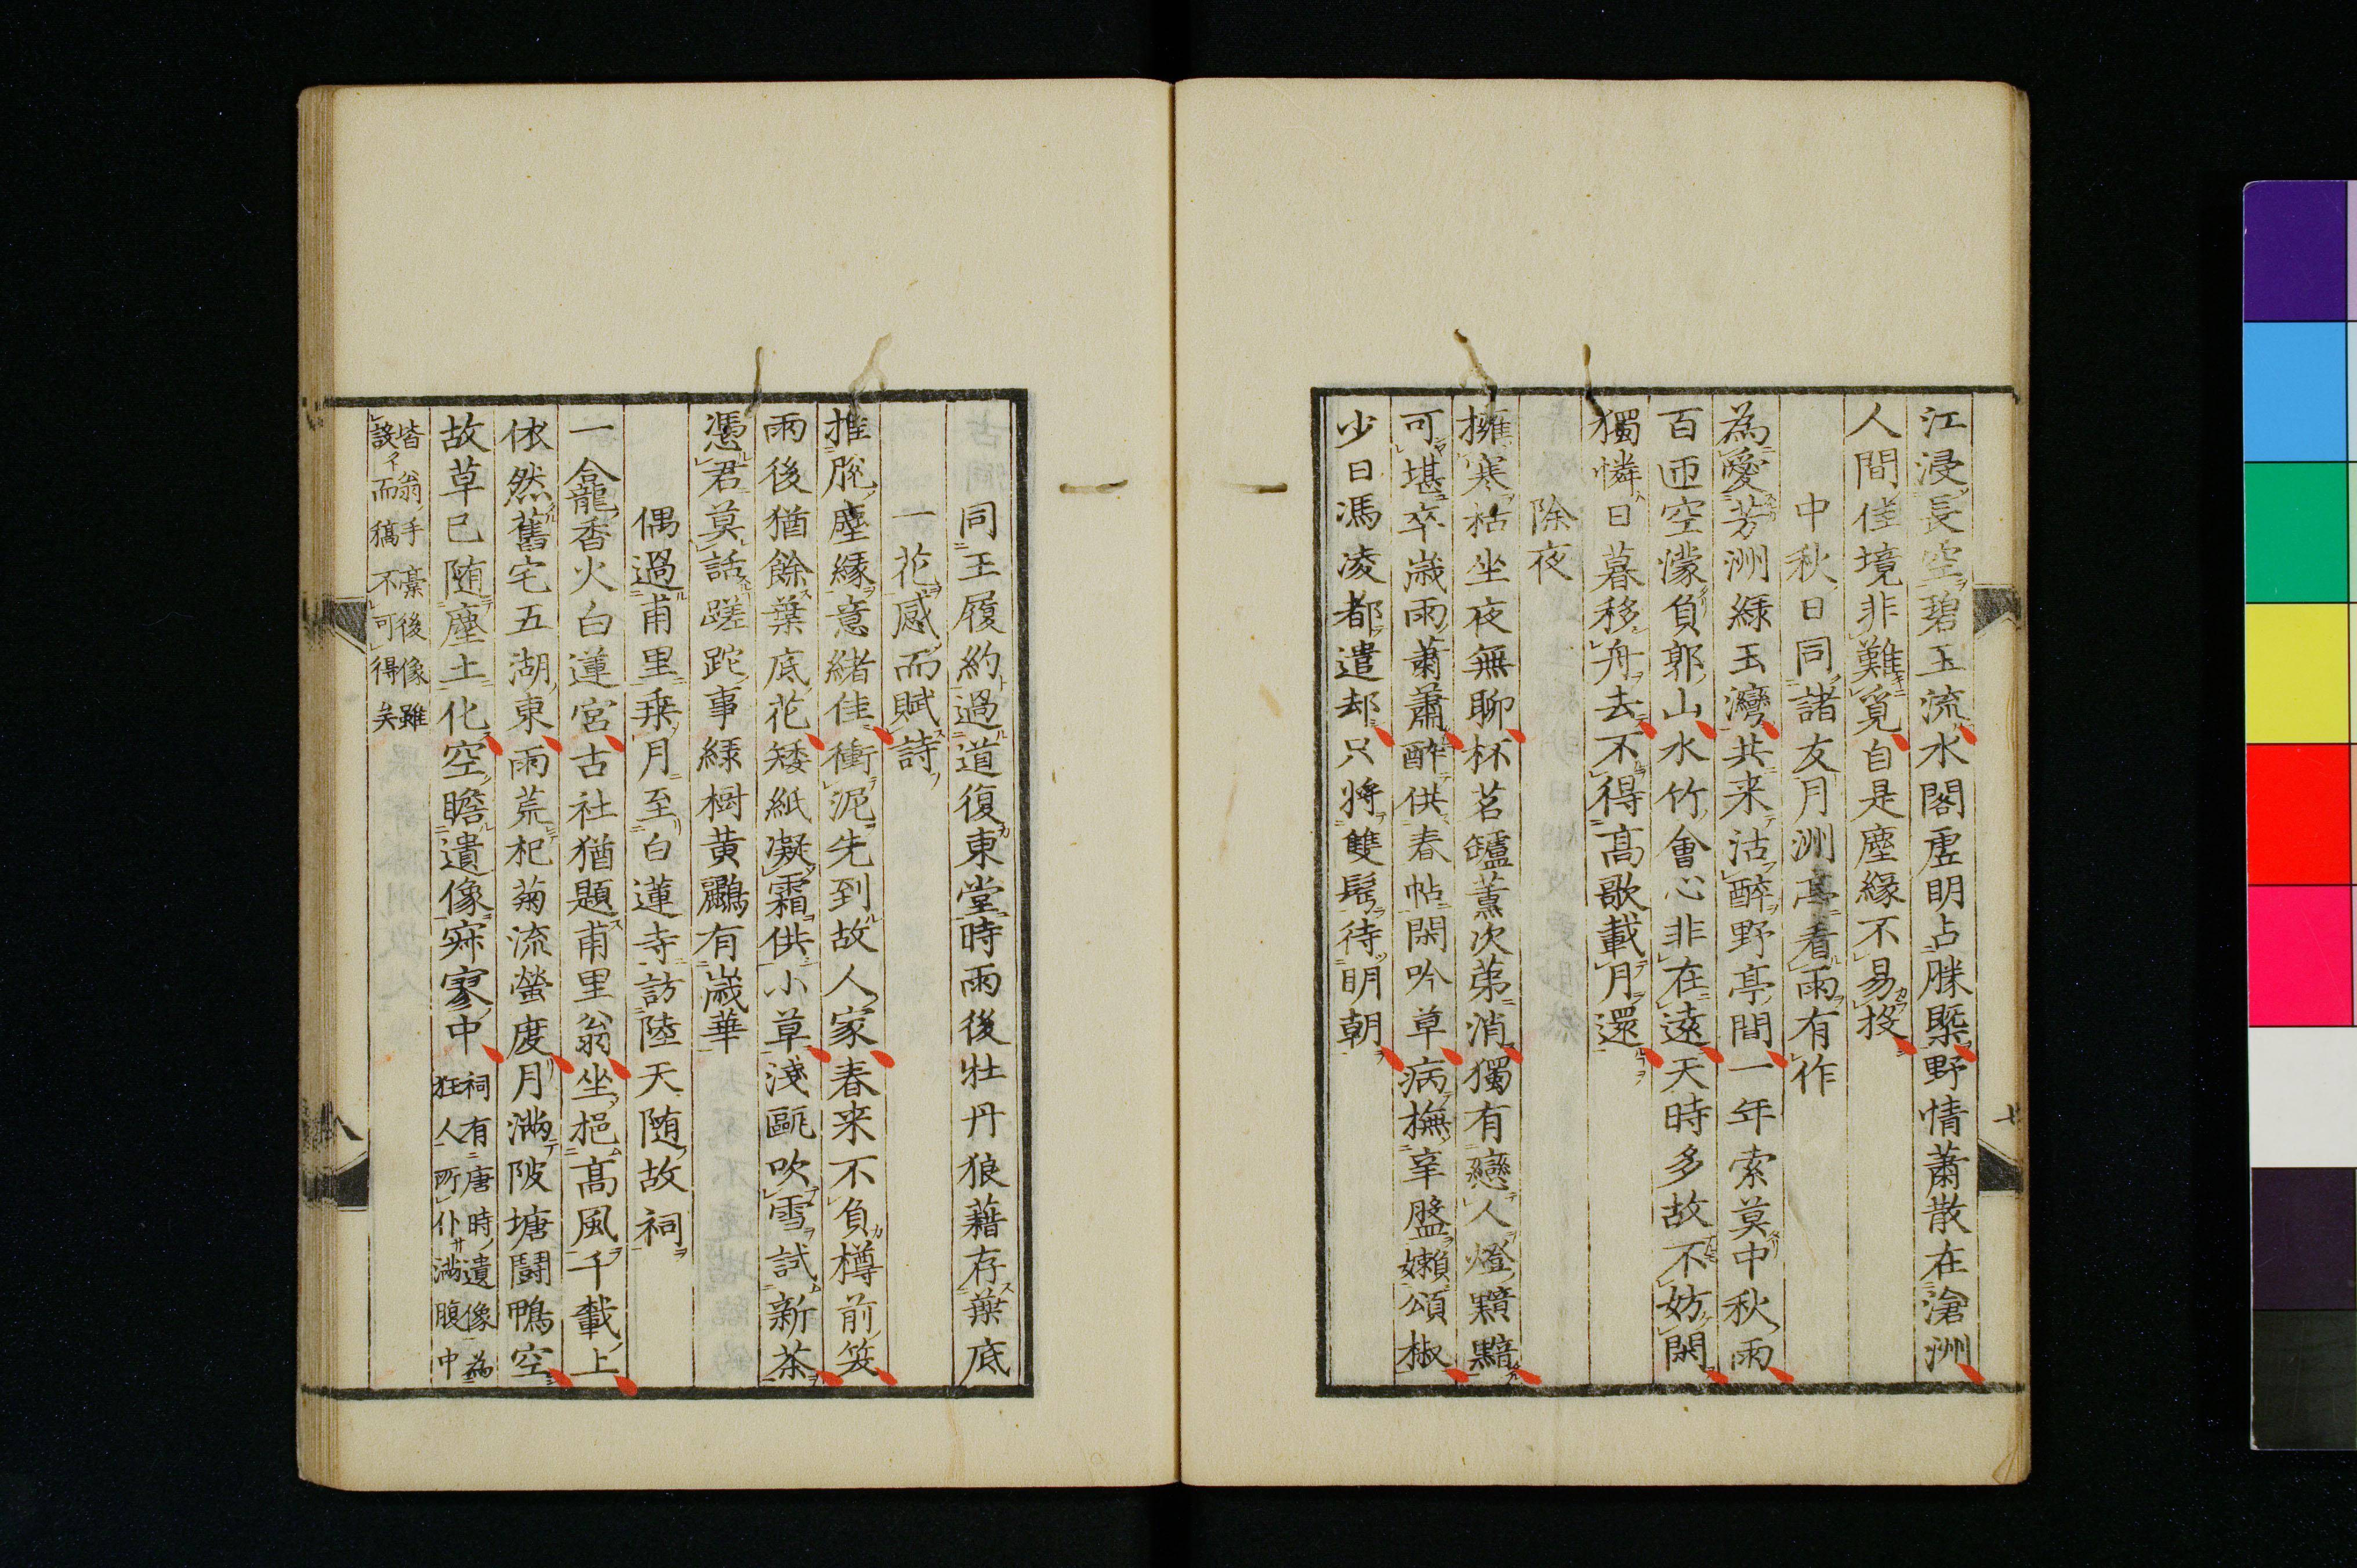 江浸長空碧玉流水閣虛明占勝槩野情蕭散在滄洲
人間佳境非難覓自是塵緣不易投
中秋日同諸友月洲亭看雨有作
為愛芳洲緑玉灣共来沽醉野亭間一年索莫中秋雨
百匝空濛負郭山水竹會心非在遠天時多故不妨閑
獨憐日暮移舟去不得高歌載月還
除夜
擁寒枯坐夜無聊杯茗罏薰次第消獨有戀人燈黯黯
可堪卒歳雨蕭蕭醉供春帖閑吟草病撫辛盤嬾頌椒
少日馮凌都遣却只將雙髩待明朝
七
同王履約過道復東堂時雨後牡丹狼藉存葉底
一花感而賦詩
推脱塵縁意緒佳衝泥先到故人家春来不負樽前笑
雨後猶餘葉底花矮紙凝霜供小草淺甌吹雪試新茶
憑君莫話蹉跎事緑樹黄鸝有歳華
偶過甫里乗月至白蓮寺訪陸天随故祠
一龕香火白蓮宮古社猶題甫里翁坐挹高風千載上
依然舊宅五湖東雨荒杞菊流螢度月滿陂塘鬪鴨空
故草已随塵土化空瞻遺像寂寥中祠有唐時遺像為
狂人所仆滿腹中
皆翁手藁後像雖
設而稿不可得矣
八